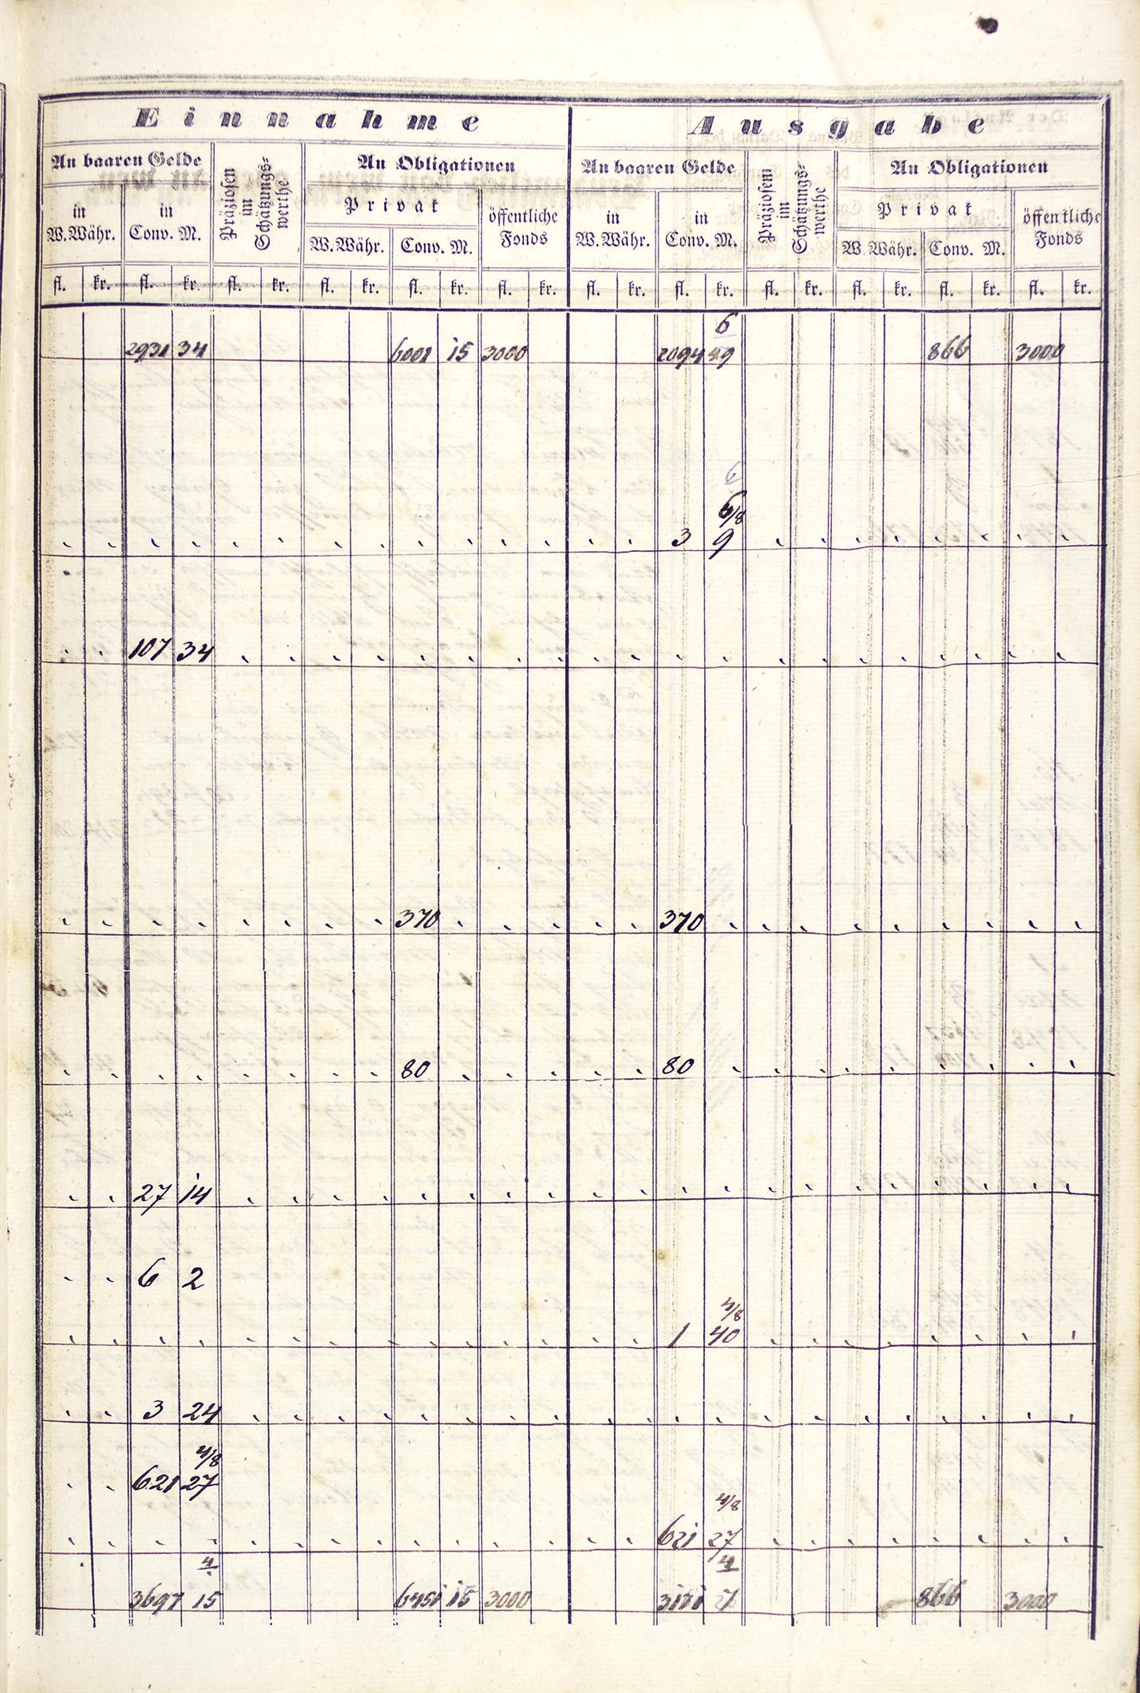 Einnahme Ausgabe
An baaren Gelde Präziosen im Schätzungs-werthe An Obligationen An baaren Gelde Präziosen im Schätzungs-werthe An Obligationen
Privat öffentliche Fonds Privat öffentliche Fonds
in W. Währ. in Conv. M. W. Währ. Conv. M. in W. Währ. in Conv. M. W. Währ. Conv. M.
fl. kr. fl. kr. fl. kr. fl. kr. fl. kr. fl. kr. fl. kr. fl. kr. fl. kr. fl. kr. fl. kr. fl. kr.
6
2931 34 6001 15 3000 2094 49 866 3000
6/8
3 9
107 34
370 370
80 80
27 14
6 2
4/8
1 40
3 24
4/8
621 27
4/8
621 27
4 4
3697 15 6451 15 3000 3171 7 866 3000